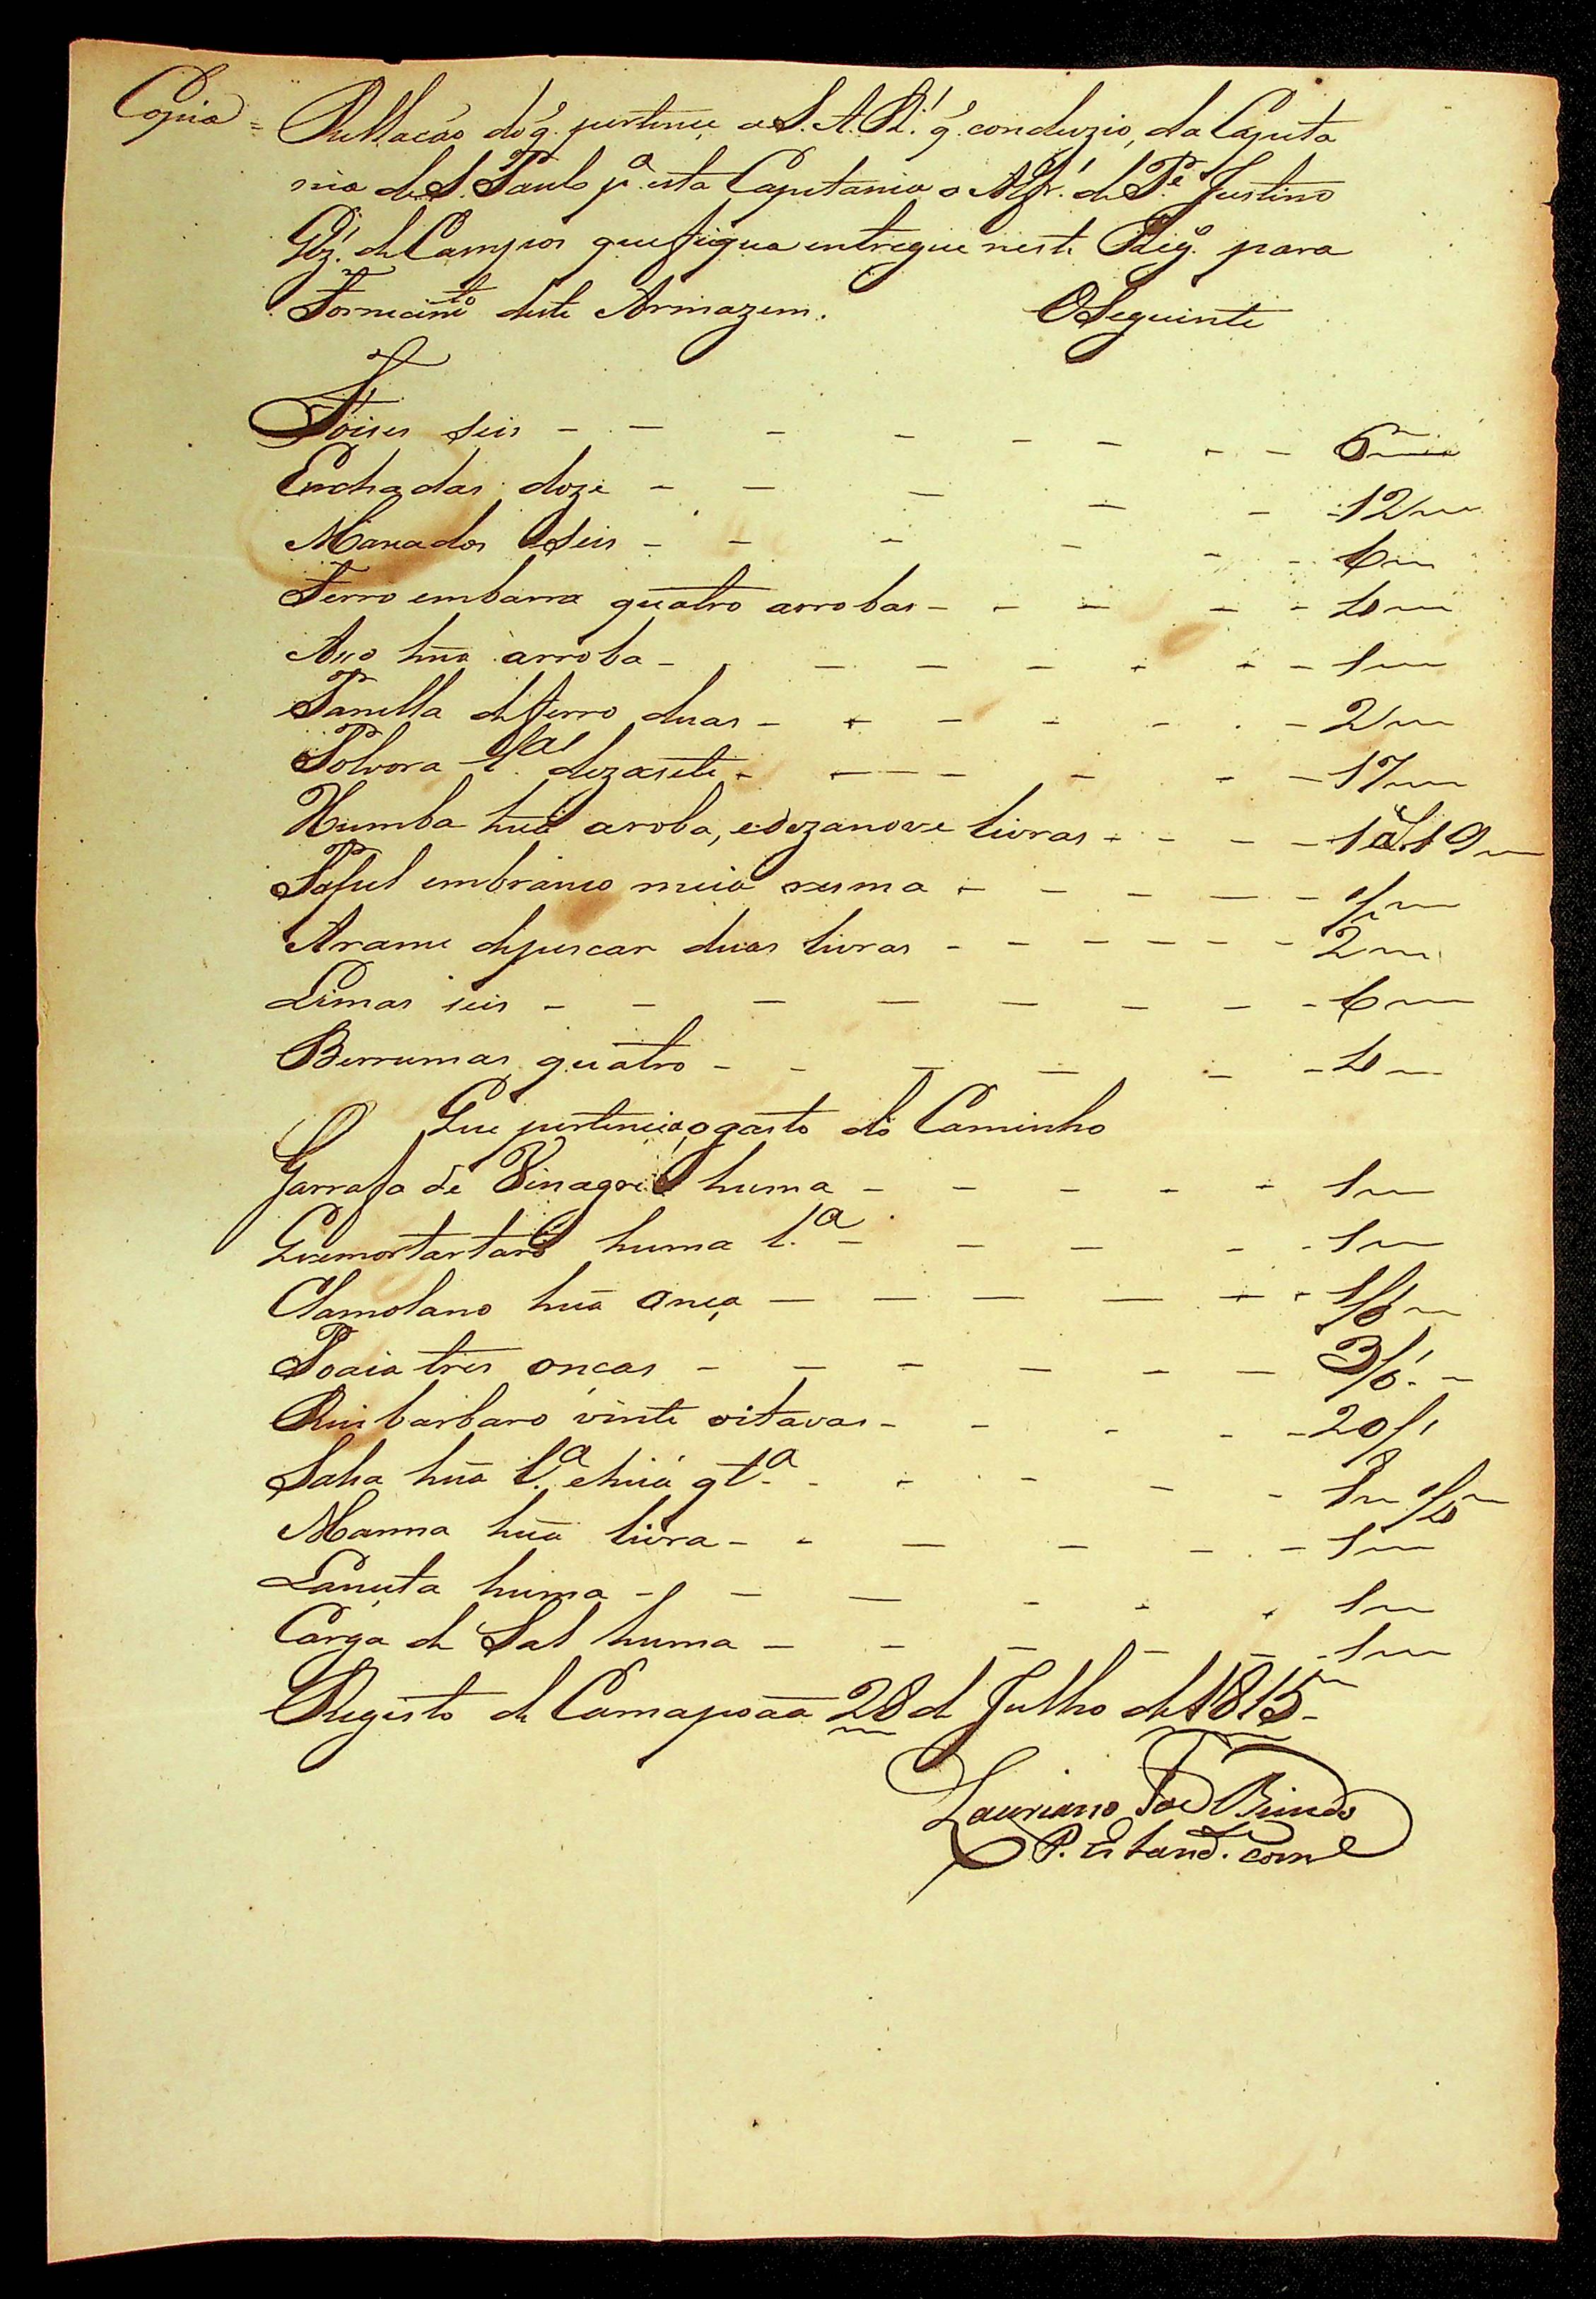 Copia =
Rellacáo do q̃. pertençe a S. A. R. q̃. conduzio, da Capita
nia de S. Paulo p.ª esta Capitania o Alfr. de P.e Justino
Glz. de Campos que fiqua entregue neste Reg.o para
Fornecim.to deste Armazem. O Seguinte
Foises seis - - - - - - - - 6
Enchadas doze - - - - - 12
Maxados Seis - - - - - - 6
Ferro embarra quatro arrobas - - - - - 4
Aço hũa arroba - - - - - - - 1
Panella de ferro duas - - - - - - 2
Polvora l.as dezasete - - - - - - 17
Xumba hũa aroba, e dezanove livras - - - - 1 a 19
Papel embranco meia resma - - - - - 1/2
Arame de pescar duas livras - - - - - - 2
Limas seis - - - - - - - - 6
Berrumas quatro - - - - - - 4
Que pertence o gasto do Caminho
Garrafa de Vinagre huma - - - - - 1
Cremortartaro huma l.ª - - - - - 1
Calamolano hũa onça - - - - - - 1/6
Poaia tres onças - - - - - - 3/6
Ruibarbaro vinte oitavas - - - - - 20/8
Salsa hũa l.ª e hũa qt.ª - - - - - 1 1/4
Manna hũa livra - - - - - - 1
Lançeta huma - - - - - - 1
Carga de Sal huma - - - - - - 1
Registo de Camapoaã 28 de Julho de 1815
Lauriano Joe
P. Estand. Com.e